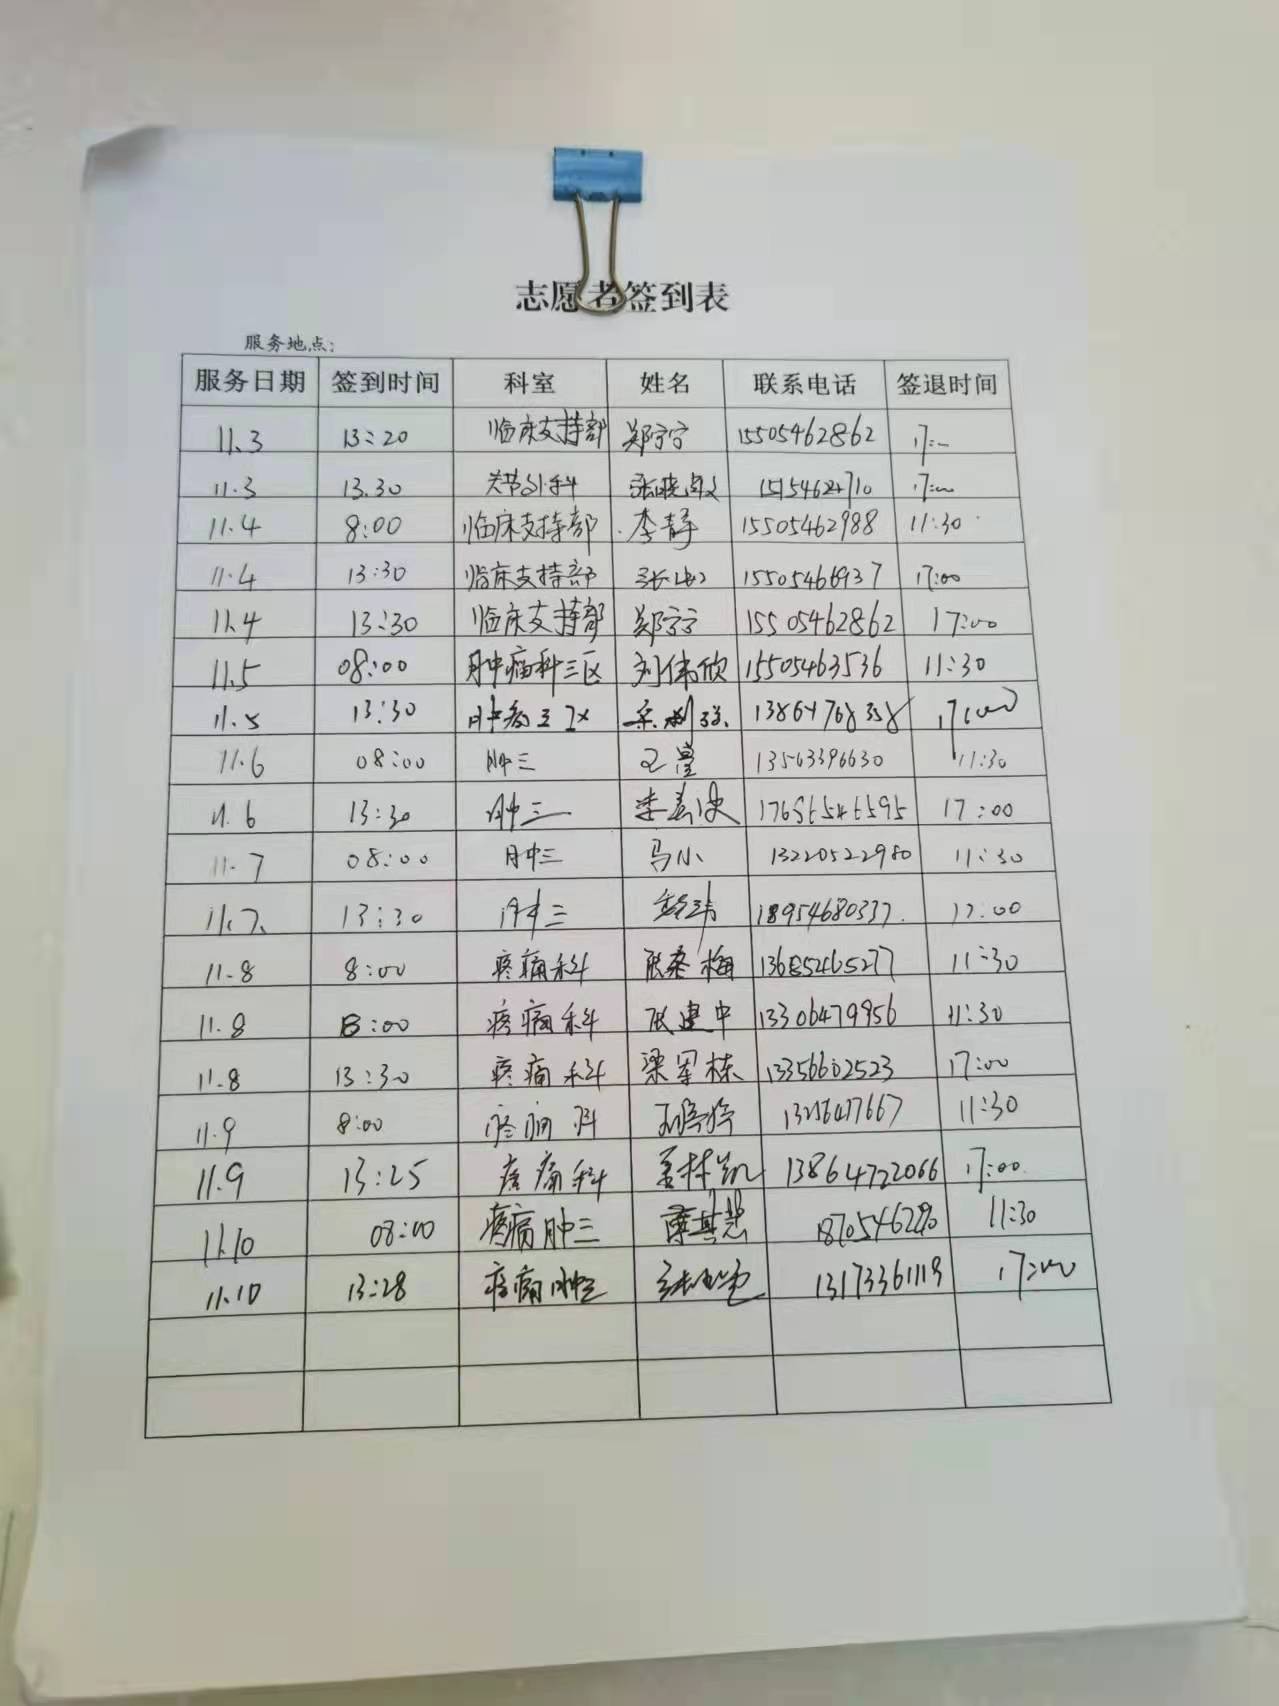 志愿者签到表
服务地点:
服务日期 签到时间 科室 姓名 联系电话 签退时间
11.3 13:20 临床支持部 郑宁宁 15505462862 17:—
11.3 13.30 关节外科 张晓 17:00
11.4 8:00 临床支持部 李静 15505462988 11:30
11.4 13:30 临床支持部 17:00
11.4 13:30 临床支持部 郑宁宁 15505462862 17:00
11.5 08:00 肿瘤科三区 刘伟欣 15505463536 11:30
11.5 13:30 13864768358 17:00
11.6 08:00 肿三 13563396630 11:30
11.6 13:30 肿三 17686546595 17:00
11.7 08:00 肿三 马小 13220522980 11:30
11.7. 13:30 肿三 18954680337. 17:00
11.8 8:00 疼痛科 13685465277 11:30
11.8 8:00 疼痛科 张建中 13306479956 11:30
11.8 13:30 疼痛科 梁军栋 13356602523 17:00
11.9 8:00 疼痛科 11:30
11.9 13:25 疼痛科 姜林凯 13864722066 17:00
11.10 08:00 疼痛肿三 薄其慧 11:30
11.10 13:28 疼痛肿三 17:00